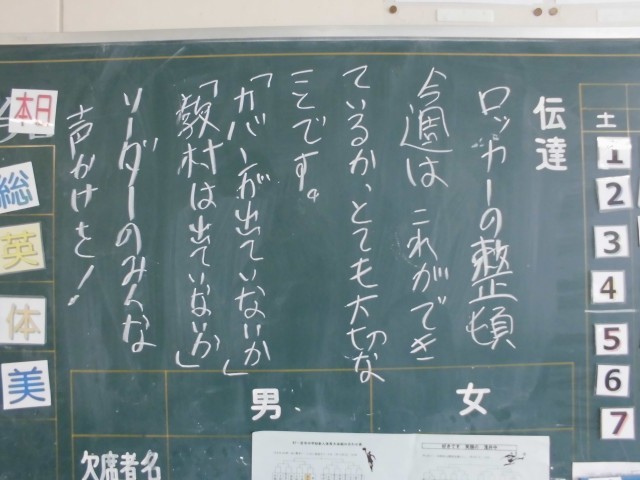 伝達
ロッカーの整頓
今週は これができ
ているか、とても大切な
ことです。
「カバーが出ていないか」
「教材は出ていないか」
リーダーのみんな
声かけを！
本日
総
英
体
美
土
1
2
3
4
5
6
7
女
男
欠席者名